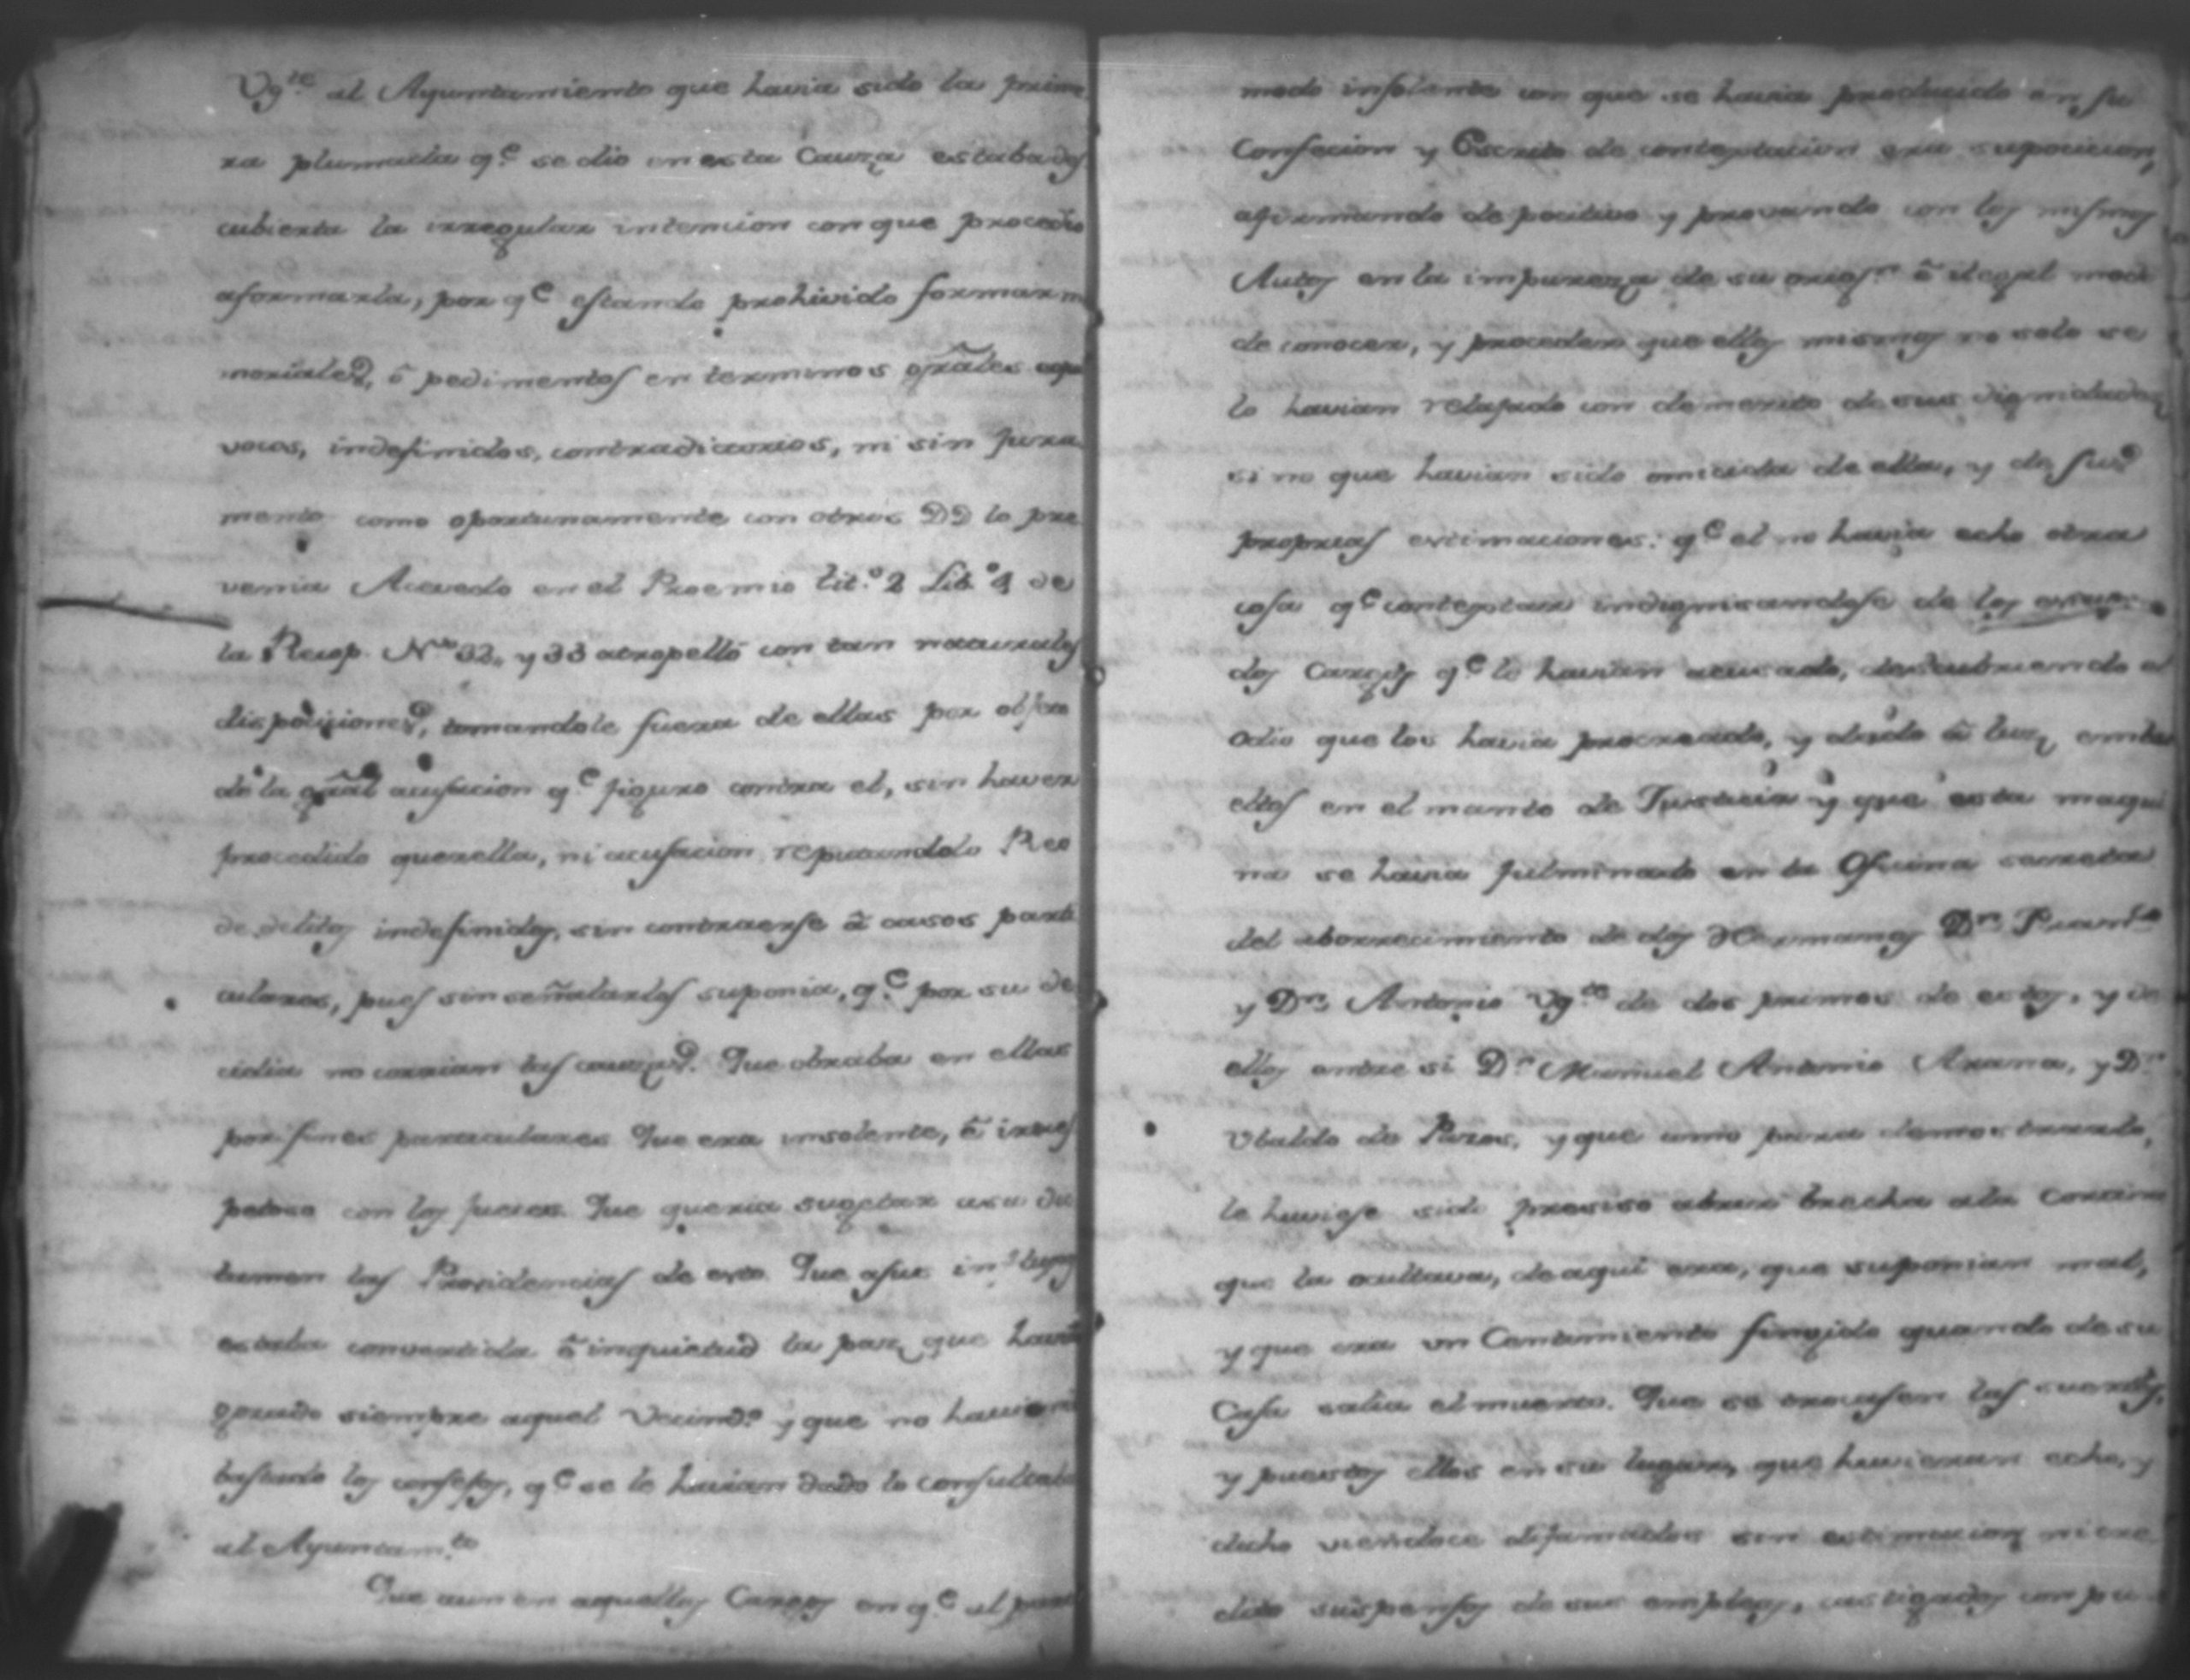 Vg.te al Ayuntamiento que havia sido la prime
ra plumada q.e se dio en esta Cauza estaba des
cubierta la irregular intencion con que procedio
aformarla, por q.e estando prohivido formar m
moriales, ô pedimentos en terminos grâles equi
vocos, indefinidos, contradictorios, ni sin jura
mento como oportunamente con otros DD lo pre
venia Acevedo en el Proemio tit.o 2 Lib.o 4 de
la Recop. N.os 32, y 33 atropelló con tan naturales
dispociziones, tomandole fuera de ellas por objeto
de la grâl acusacion q.e figuro contra el, sin haver
procedido querella, ni acusacion reputandolo Reo
de delitos indefinidos, sin contraerse â casos parti
culares, pues sin señalarlos suponia, q.e por su de
cidia no corrian las cauzas. Que obraba en ellas
por fines particulares Que era insolente, ê irres
petoso con los Jueces. Que queria sugetar asu dic
tamen las Providencias de esto. Que asus
estaba convertida ê inquietud la paz que havia
gozado siempre aquel Vecind.o y que no haviend
bastado los consejos, q.e se le havian dado lo consultaba
al Ayuntam.to
Que aun en aquellos Cargos en q.e al
modo insolente con que se havia producido en su
Confecion y Escrito de contestacion era suposicion,
afirmando de pocitivo y provando con los mismos
Autos en la impureza de su orig.n ê ilegal modo
de conocer, y proceder que ellos mismos no solo se
lo havian relajado con demerito de sus dignidades
si no que havian sido omicida de ella, y de sus
proprias estimaciones: q.e el no havia echo otra
cosa q.e contestar indignisandose de los
dos Cargos q.e le havian acusado, descubriendo el
odio que los havia procreado, y dado â luz embu
eltos en el manto de Justicia y que esta maqui
na se havia fulminado en la Oficina secreta
del aborrecimiento de dos Hermanos D.n
y D.n Antonio Vg.te de dos primos de estos, y de
ellos entre si D.n Manuel Antonio Arana, y D.n
Vbaldo de Pazos, y que como para demostrarlo,
le huviese sido presiso abrir brecha ala Cortina
que la ocultava, de aqui era, que suponian mal,
y que era vn Centimiento fingido quando de su
Casa salia el muerto. Que se trocasen las suertes,
y puestos ellos en su lugar, que huvieran echo, y
dicho viendoce difamados sin estimacion ni cre
dito suspensos de sus empleos, castigados con pu